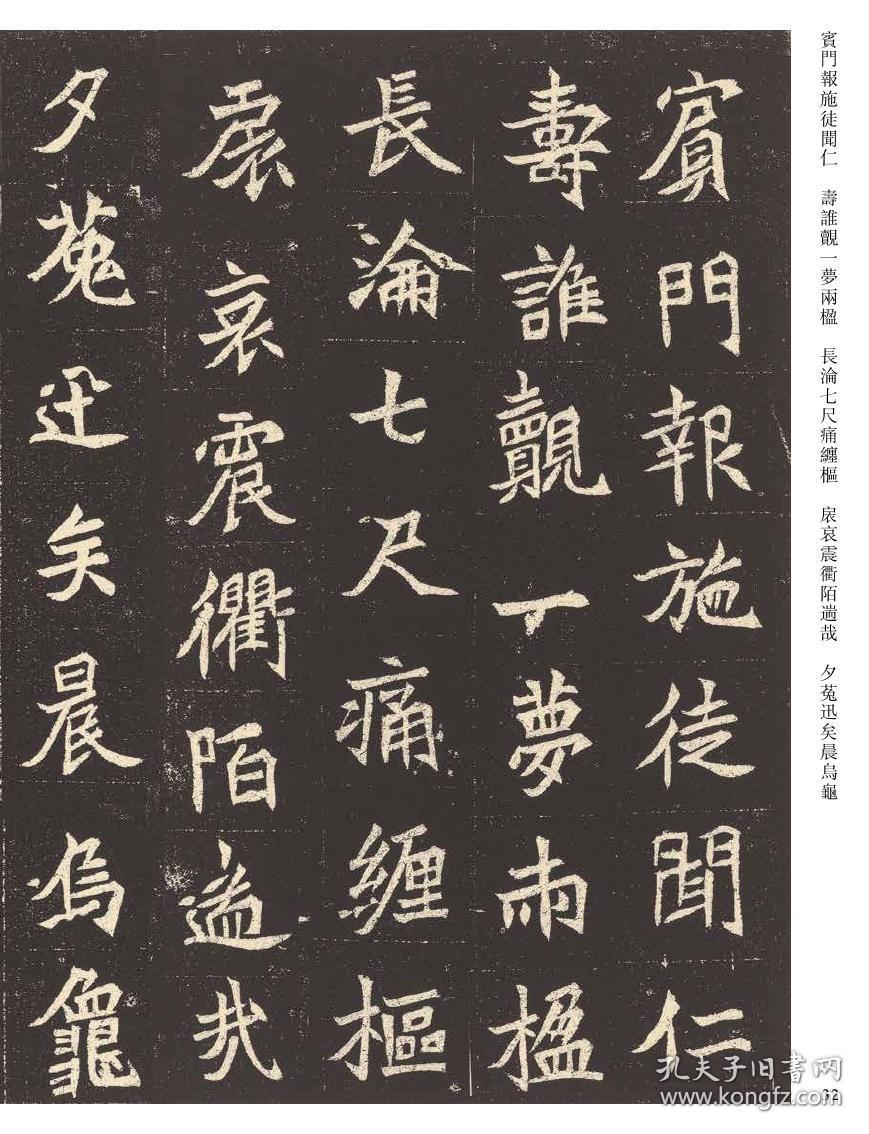 賓門報施徒聞仁
壽誰觀一夢兩楹
長淪七尺痛纏樞
扆哀震衢陌遄哉
夕菟迅矣晨烏龜
賓門報施徒聞仁 壽誰覿一夢兩楹 長淪七尺痛纏樞 扆哀震衢陌遄哉 夕菟迅矣晨烏龜
孔夫子旧书网
www.kongfz.com
32